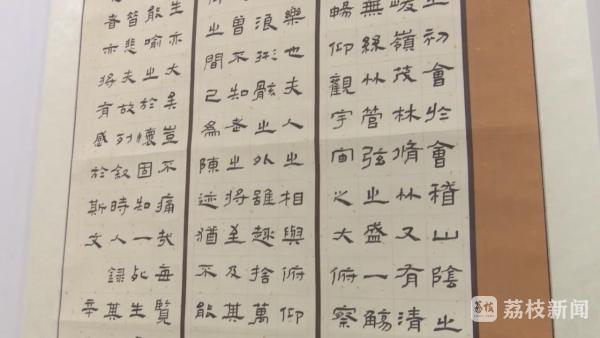 之初會於會稽山陰之
峻嶺茂林脩竹又有清
無絲竹管弦之盛一觴
暢仰觀宇宙之大俯察
樂也夫人之相與俯仰
浪形骸之外雖趣捨萬
曾不知老之將至及其
仰之間已為陳迹猶不能
生亦大矣豈不痛哉每覽
能喻之於懷固知一死生
皆悲夫故列敘時人錄其
者亦將有感於斯文 辛
荔枝 荔枝新闻